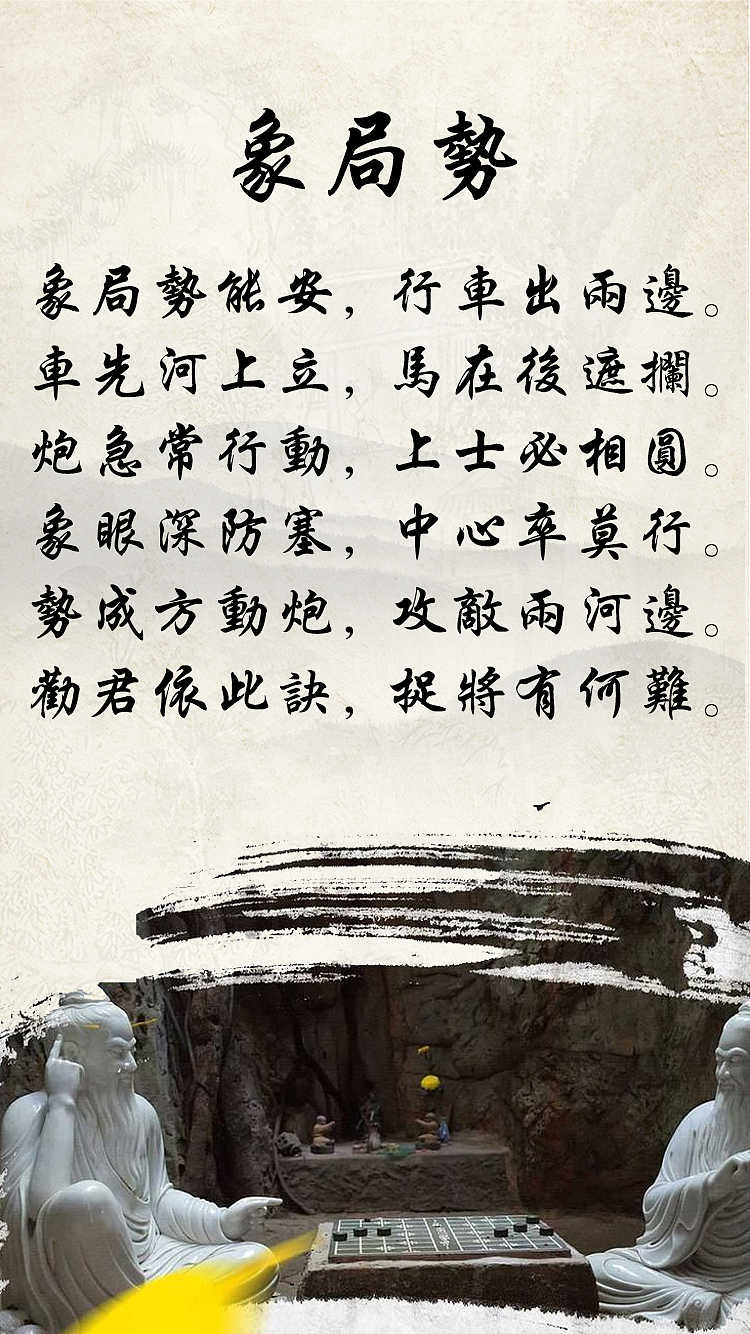 象局勢
象局勢能安，行車出兩邊。
車先河上立，馬在後遮攔。
炮急常行動，上士必相圓。
象眼深防塞，中心卒莫行。
勢成方動炮，攻敵兩河邊。
勸君依此訣，捉將有何難。